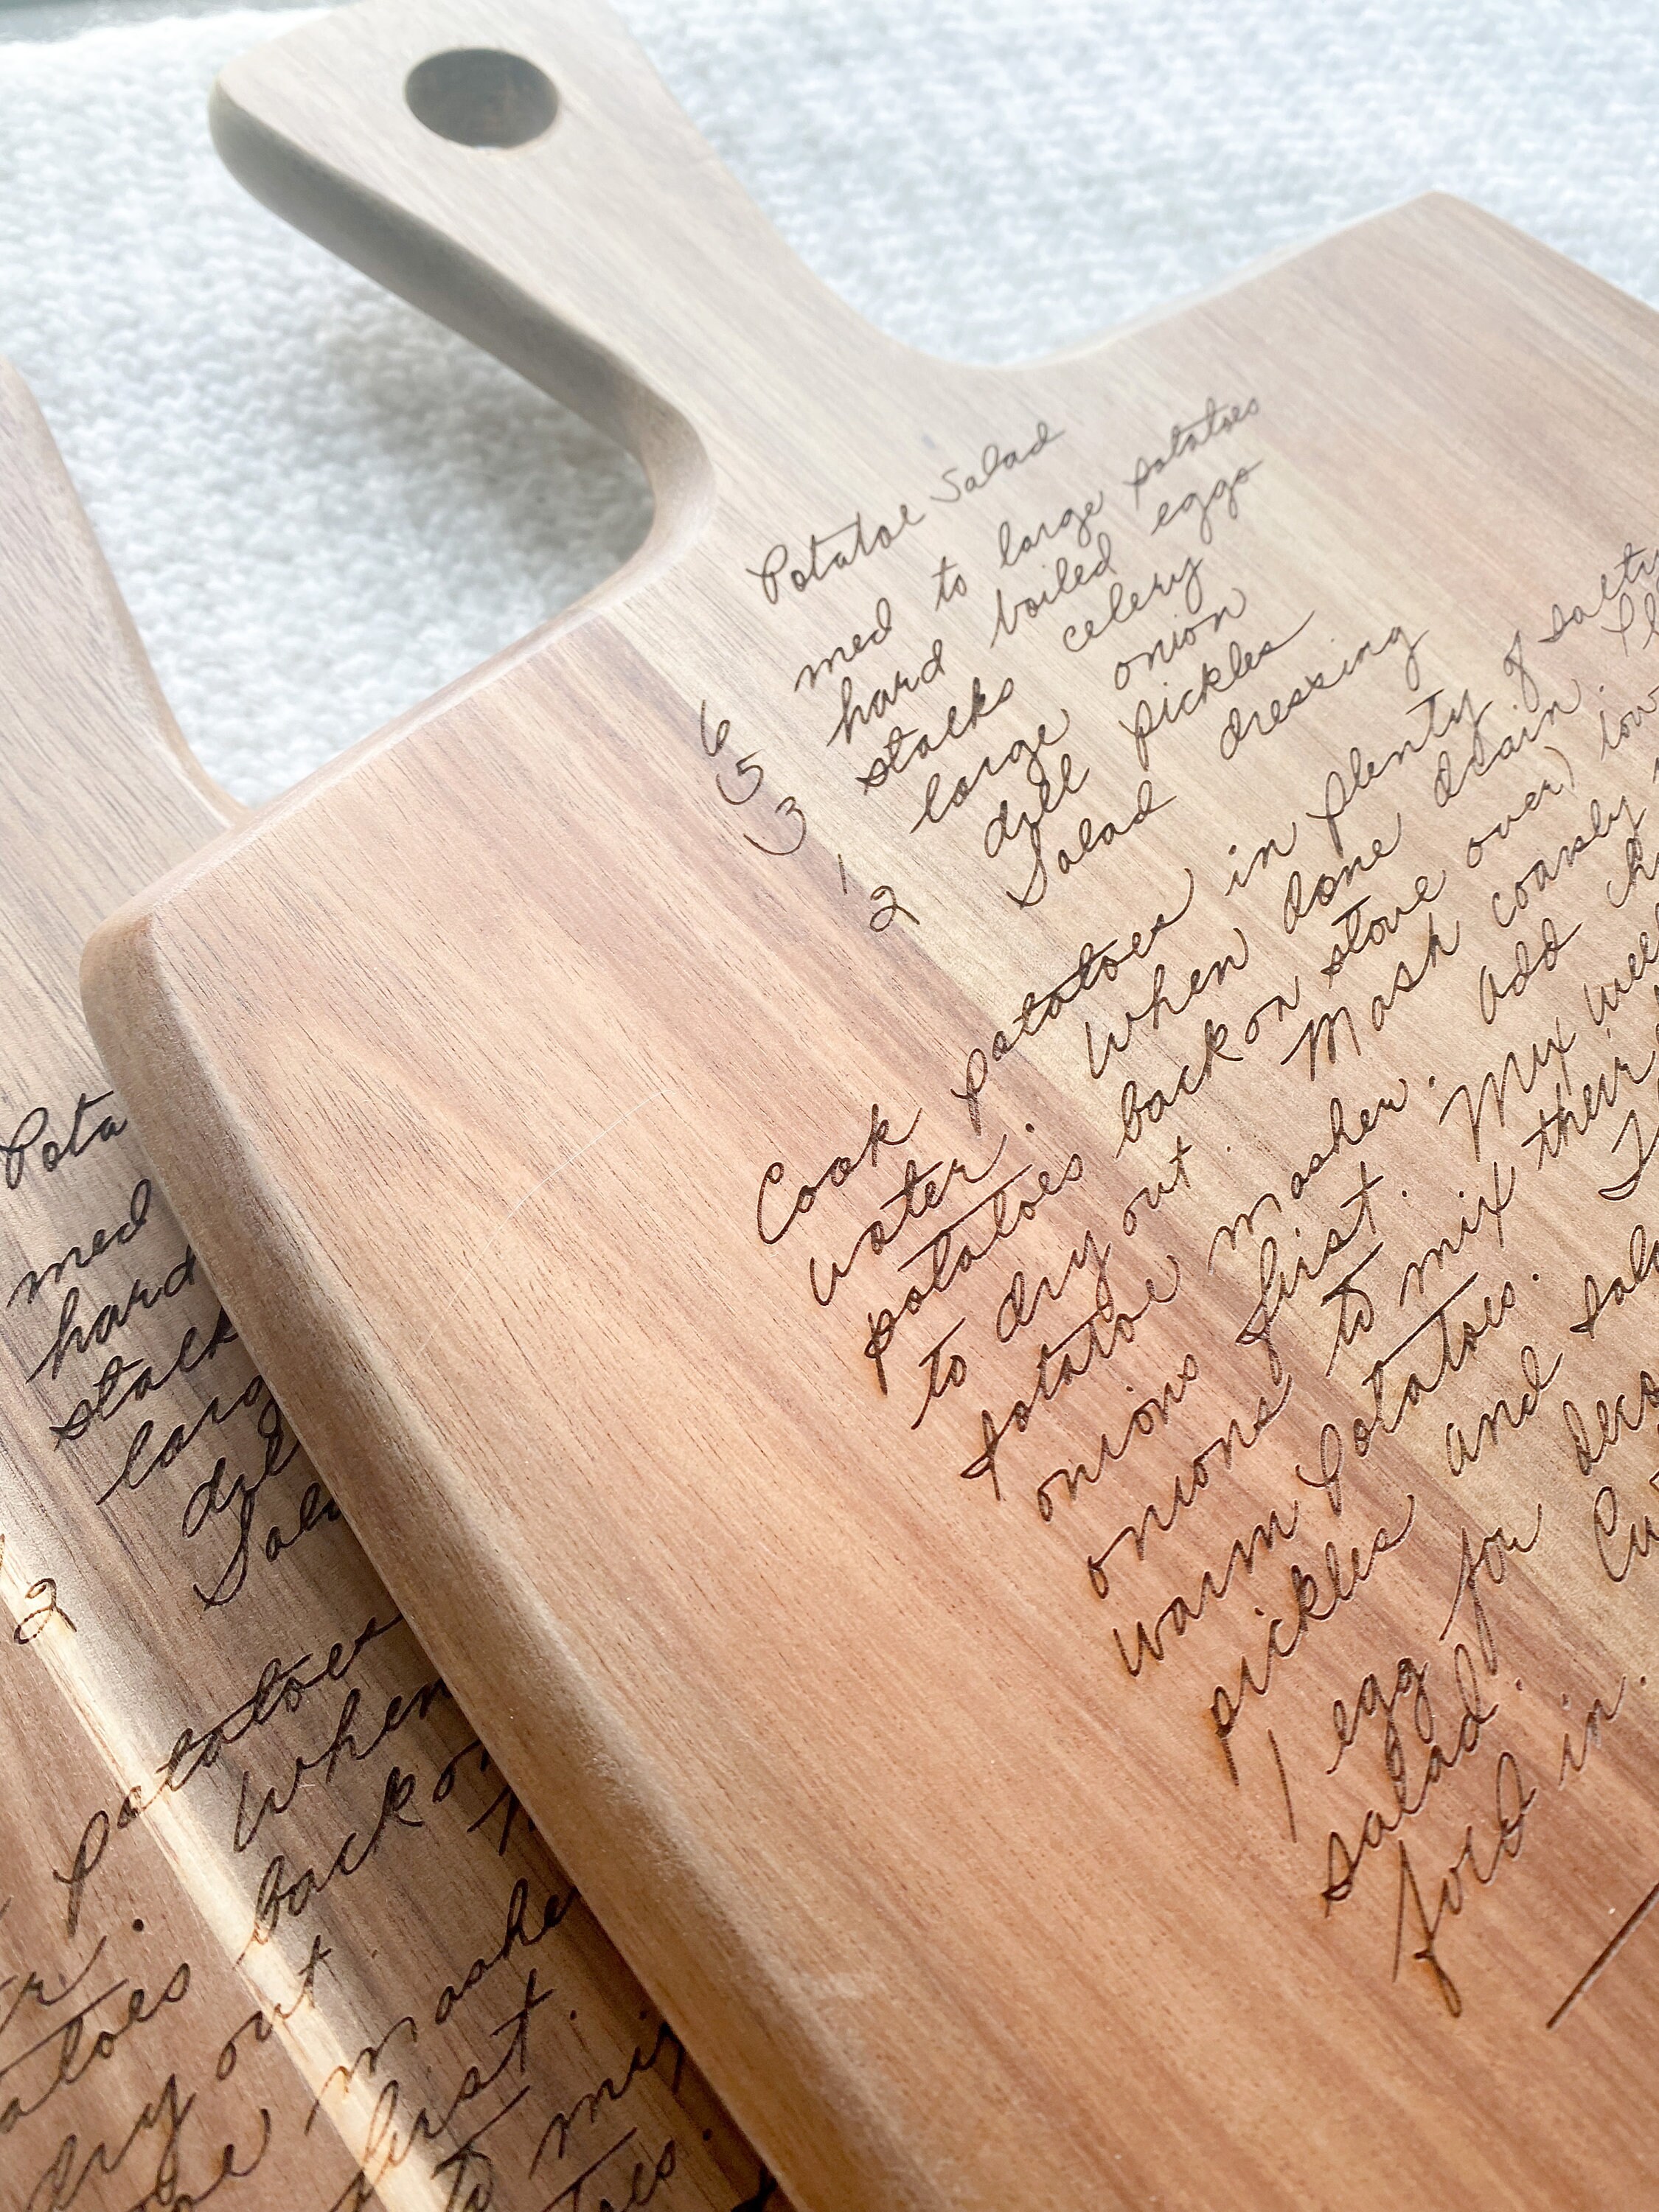 Potatoe Salad
6 med to large potatoes
5 hard boiled eggs
3 stalks celery
1 large onion
2 dill pickles
Salad dressing
Cook potatoes in plenty of
water. When done drain.
potatoes back on stove over) low
to dry out. Mash coarsly
potatoe masher. Add
onions first. Mix well
onions to mix their
warm potatoes.
pickles and
1 egg for
salad.
fold in.
Pota
med
hard
stalk
larg
dill
2 Sala
potatoes
When
back on
atoes
dry out.
mashe
first.
to mix